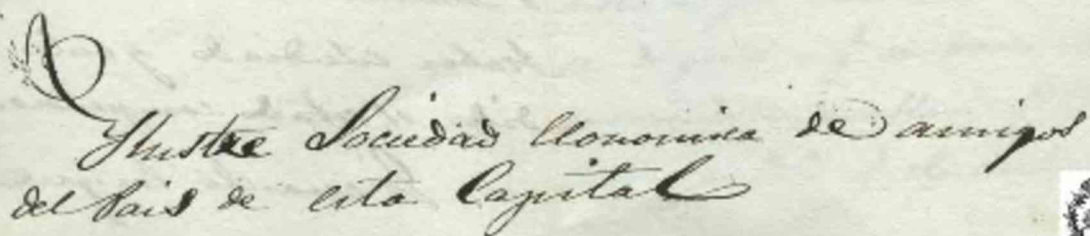 Ylustre Sociedad Economica de amigos
del Pais de esta Capital